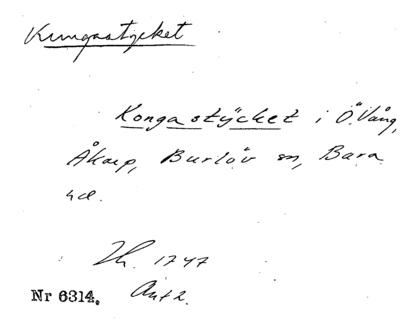 Kungastycket
Konga stÿcket i Ö. Vång,
Åkarp, Burlöv sn, Bara
hd.
1747
Nr 6314. Akt 2.